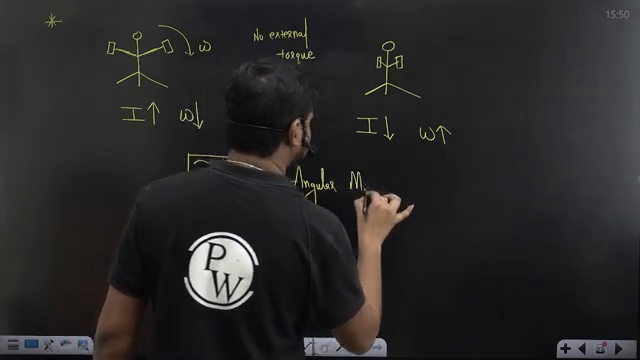 15:50
* ω
No external
torque
I↑ ω↓
I↓ ω↑
Angular M
P
W